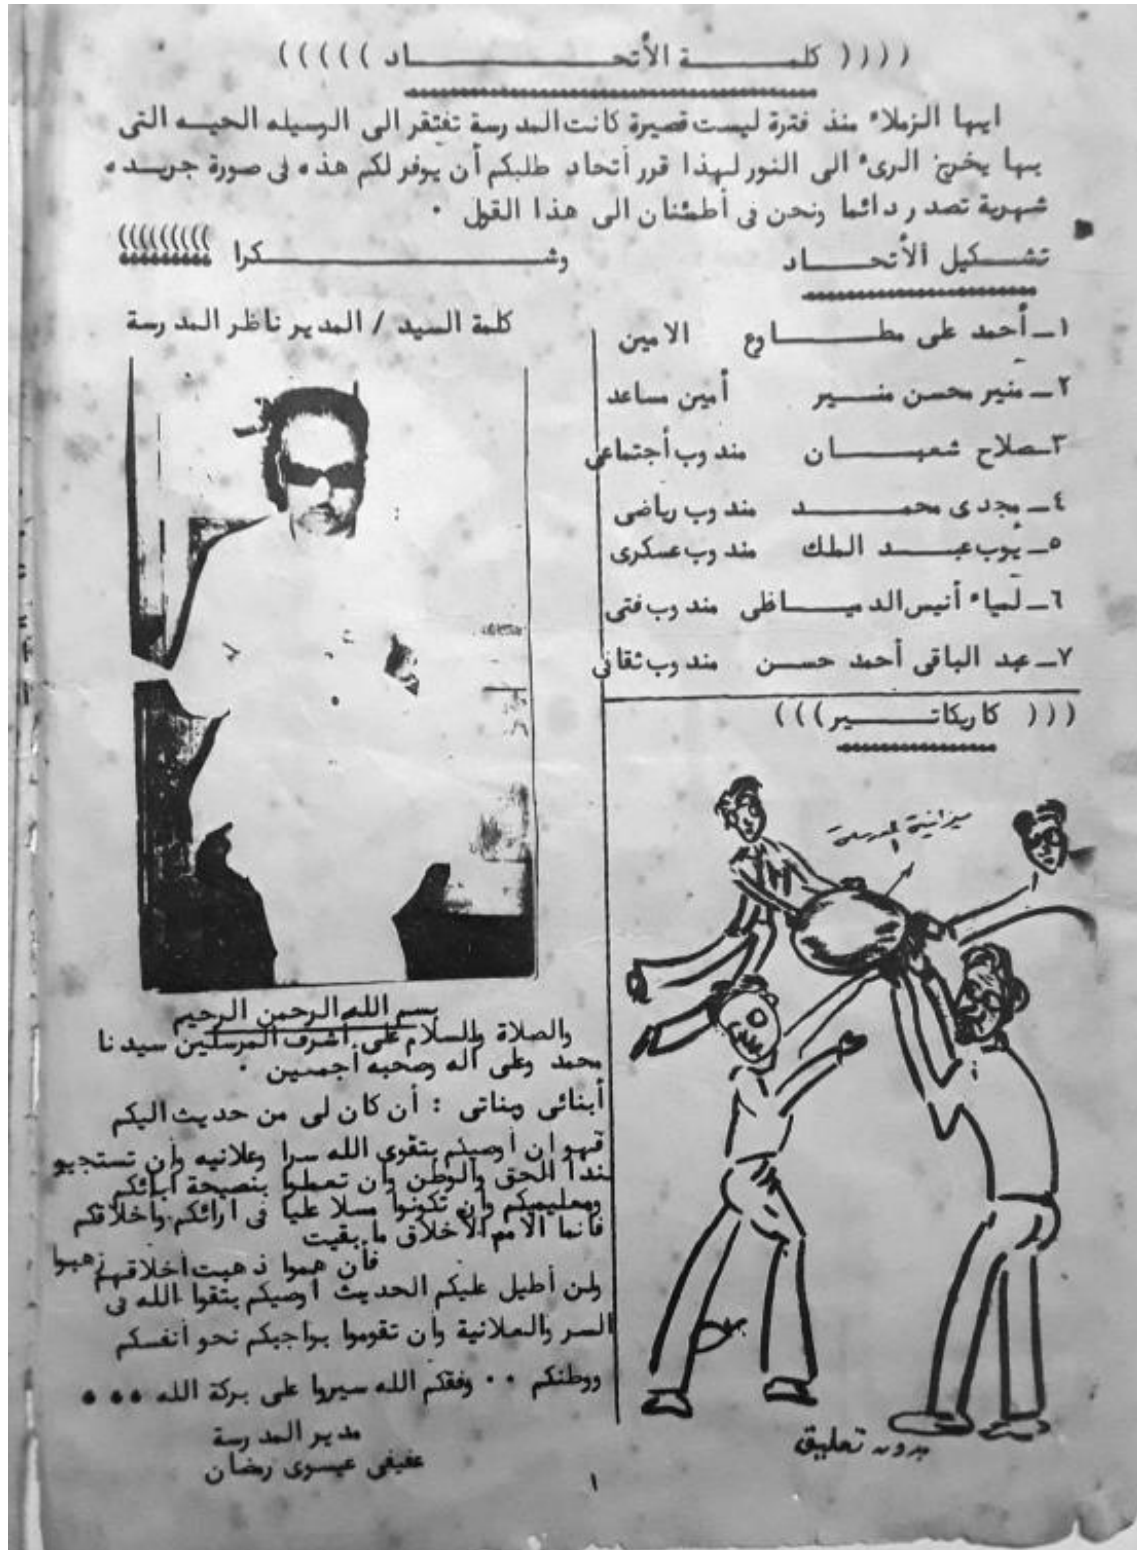 (((( كلمـــة الأتحـــــــاد )))))
ايها الزملاء منذ فترة ليست قصيرة كانت المدرسة تفتقر الى الوسيله الحيه التى
بها يخرج الرىء الى النور لهذا قرر أتحاد طلبكم أن يوفر لكم هذه فى صورة جريده
شهرية تصدر دائما ونحن فى أطمئنان الى هذا القول .
وشـــــــــكرا )))))))))
تشـكيل الأتحـــاد
١ـ أحمد على مطـــاوع الامين
٢ـ منير محسن منـــير أمين مساعد
٣ـ صلاح شعبـــان مندوب أجتماعى
٤ـ مجدى محمـــد مندوب رياضى
٥ـ يوب عبـد الملك مندوب عسكرى
٦ـ لمياء أنيس الدميـــاطى مندوب فتى
٧ـ عبد الباقى أحمد حسـن مندوب ثقافى
((( كاريكاتـــير )))
ميزانية المدرسة
بدون تعليق
كلمة السيد / المدير ناظر المدرسة
بسم الله الرحمن الرحيم
والصلاة والسلام على أشرف المرسلين سيدنا
محمد وعلى اله وصحبه أجمعين .
أبنائى وبناتى : أن كان لى من حديث اليكم
فهو ان أوصيكم بتقوى الله سرا وعلانيه وأن تستجيبو
لندا الحق والوطن وان تعملوا بنصيحة ابائكم
ومعليميكم وان تكونوا مسلا عليا فى ارائكم واخلاقكم
فانما الامم الأخلاق ما بقيت
فأن هموا ذهبت اخلاقهم ذهبوا
ولن أطيل عليكم الحديث اوصيكم بتقوا الله فى
السر والعلانية وان تقوموا بواجبكم نحو أنفسكم
ووطنكم .. وفقكم الله سيروا على بركة الله ***
مدير المدرسة
عفيفى عيسوى رمضان
١